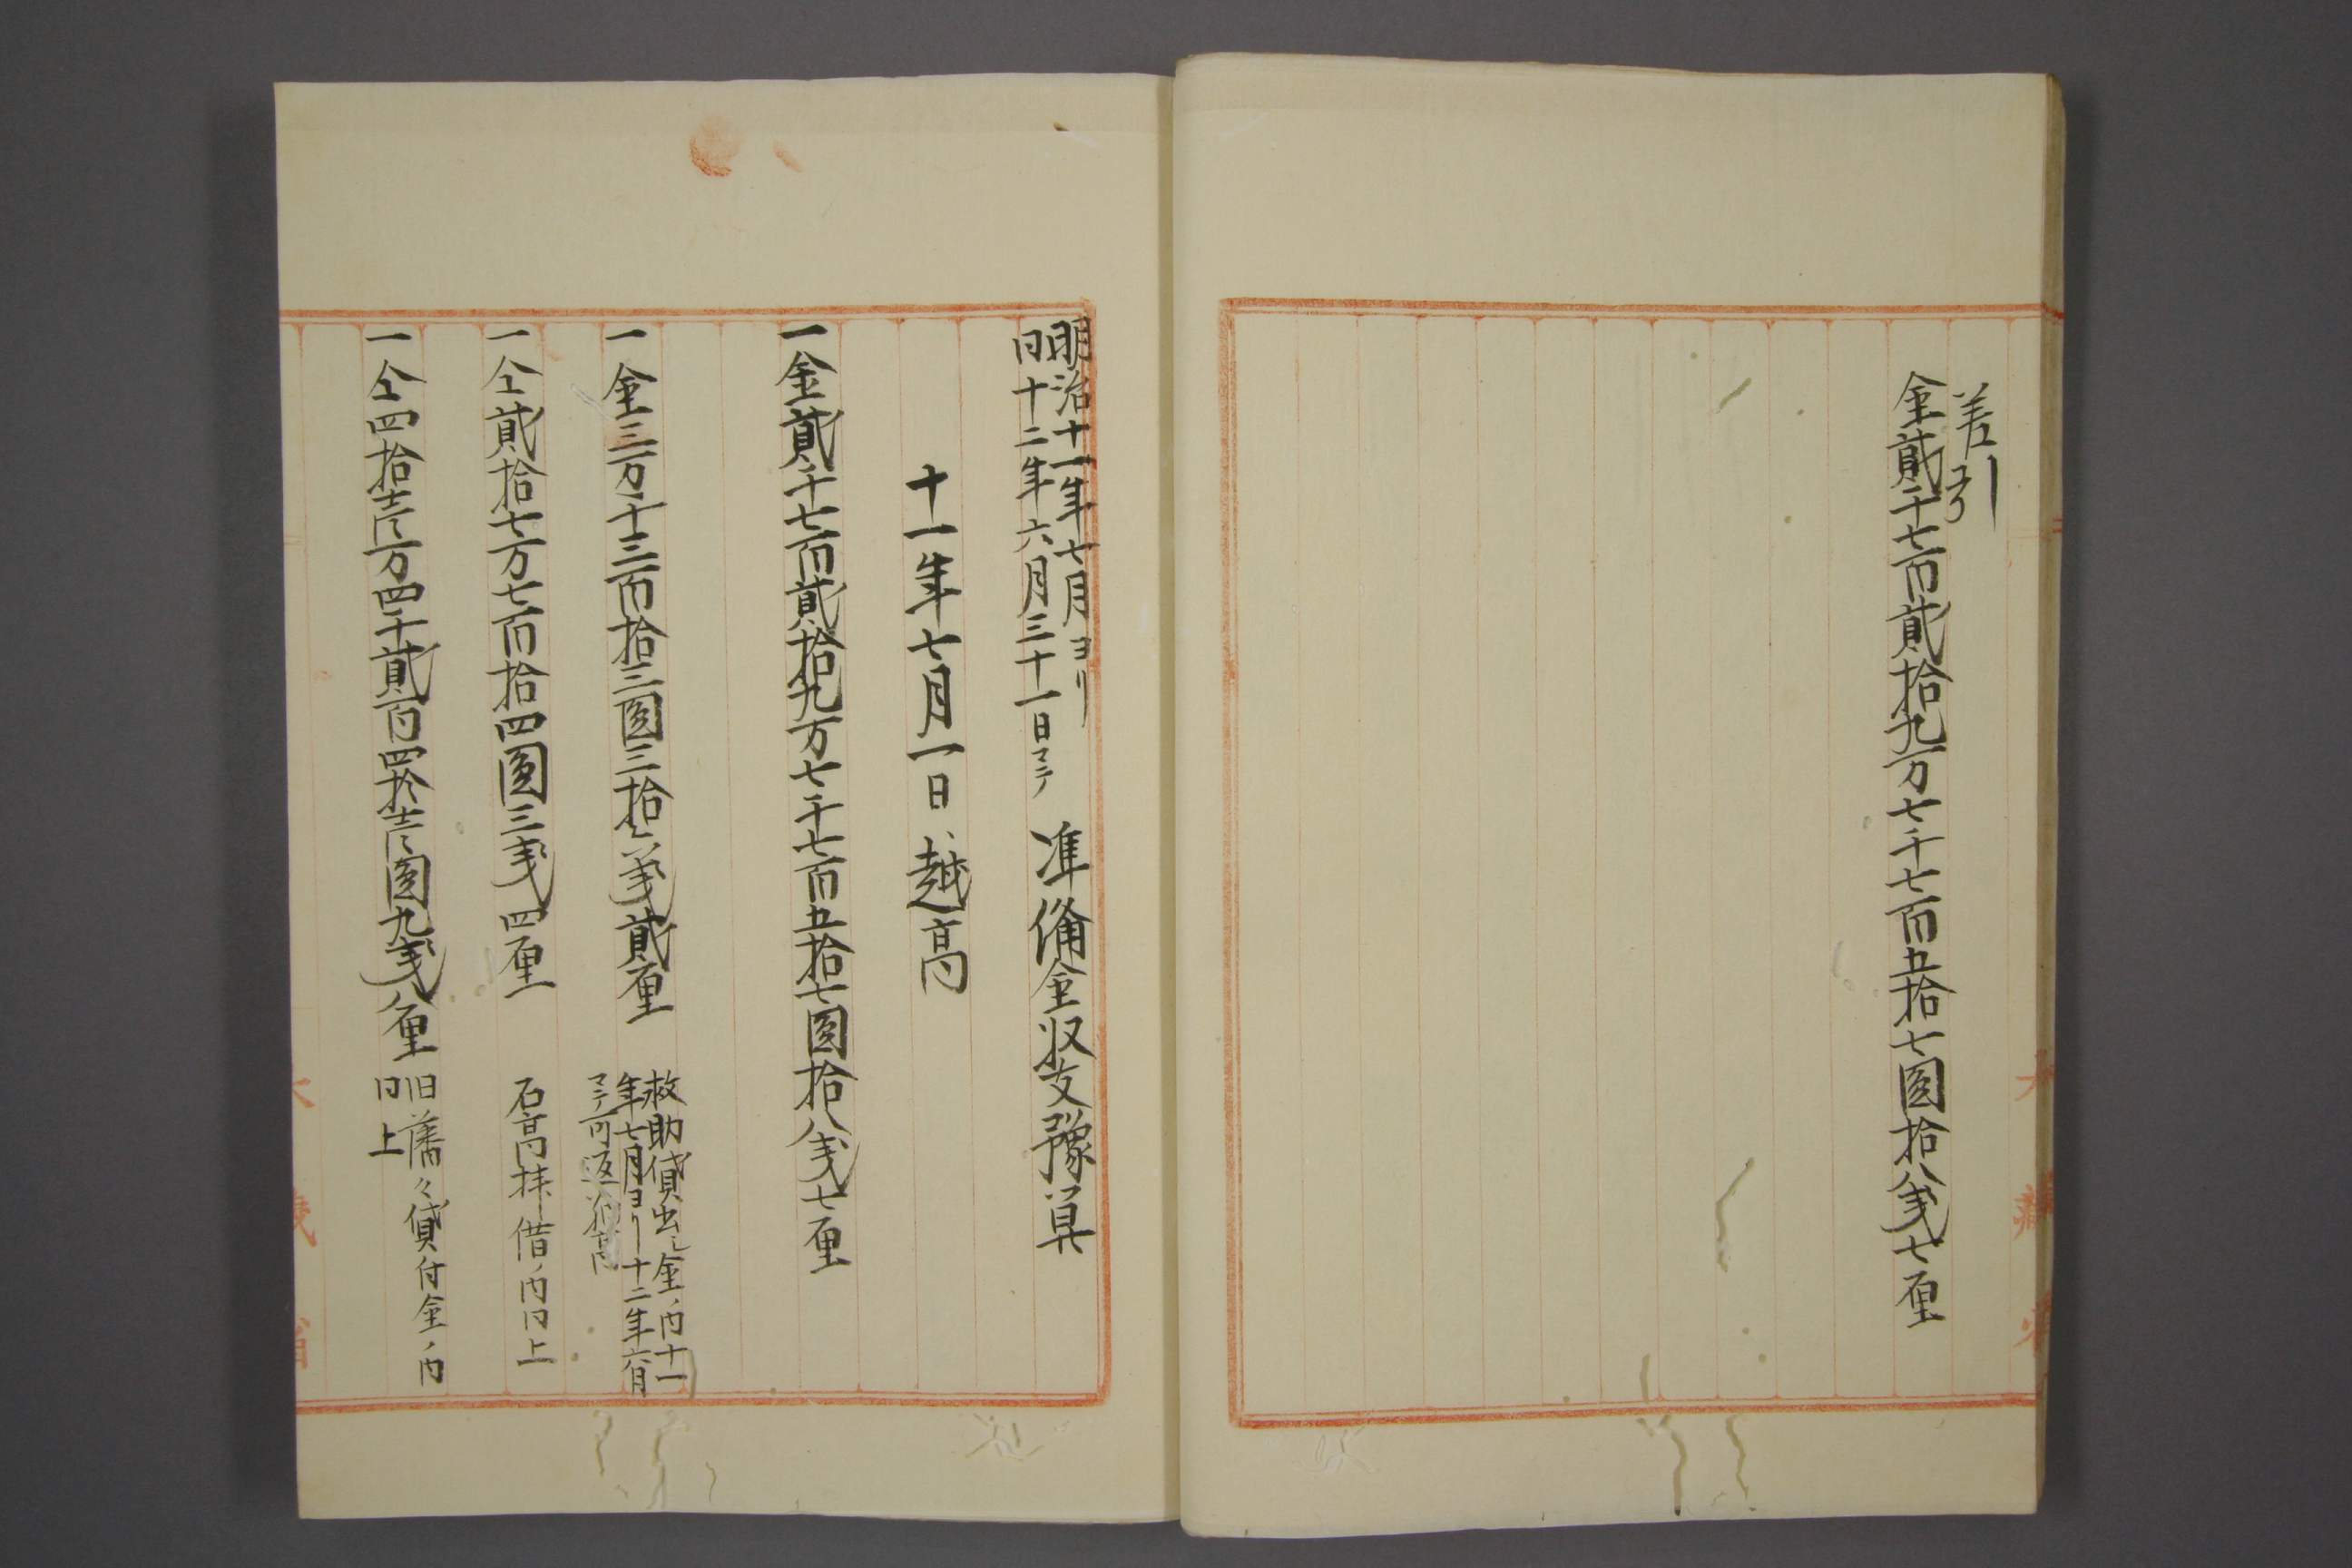 差引
金貳千七百貳拾九万七千七百五拾七圓拾八戔七厘
明治十一年七月ヨリ
同十二年六月三十一日マテ
準備金収支豫算
十一年七月一日越高
一金貳千七百貳拾九万七千七百五拾七圓拾八戔七厘
一金三万千三百拾三圓三拾六戔貳厘
救助貸出シ金ノ内十一
年七月ヨリ十二年六月
マテ可返納高
一仝貳拾七万七百拾四圓三戔四厘
石高拝借ノ内同上
一仝四拾壱万四千貳百四拾壱圓九戔八厘
旧藩々貸付金ノ内
同上
大藏省